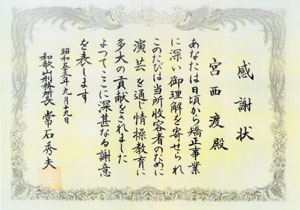 感謝状
宮西渡殿
あなたは日頃から矯正事業
に深い御理解を寄せられ
このたびは当所収容者のために
演芸を通じ情操教育に
多大の貢献をされました
よつてここに深甚なる謝意
を表します
昭和五五年九月十九日
和歌山刑務所長 常石秀夫